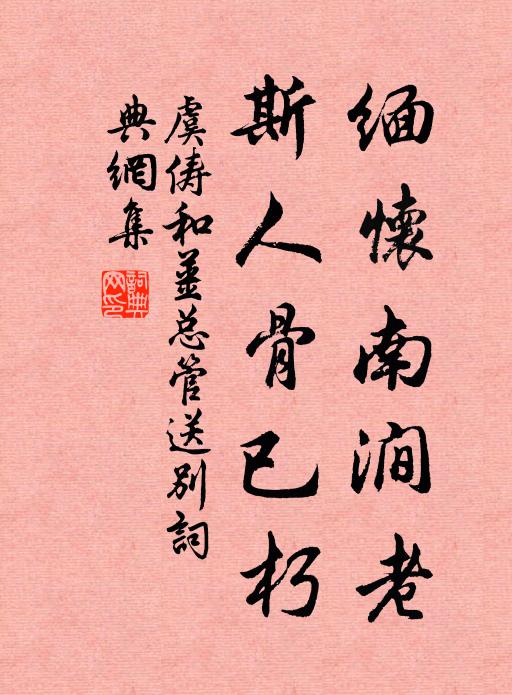 缅懷南澗老
斯人骨已朽
虞俦和姜总管送别詞
典網集
詞典網印